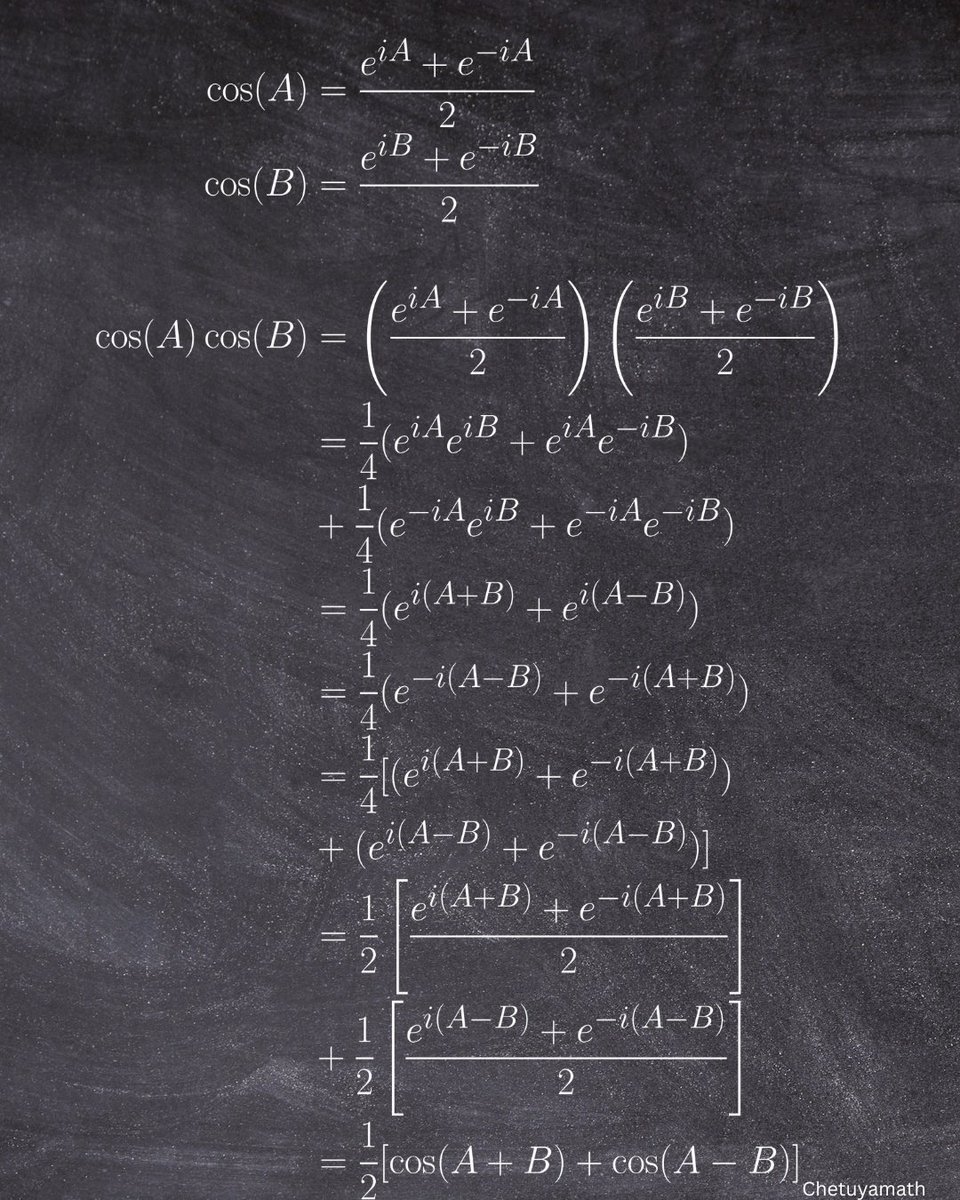 cos(A) = \frac{e^{iA} + e^{-iA}}{2}
cos(B) = \frac{e^{iB} + e^{-iB}}{2}
cos(A) cos(B) = \left(\frac{e^{iA} + e^{-iA}}{2}\right) \left(\frac{e^{iB} + e^{-iB}}{2}\right)
= \frac{1}{4}(e^{iA}e^{iB} + e^{iA}e^{-iB})
+ \frac{1}{4}(e^{-iA}e^{iB} + e^{-iA}e^{-iB})
= \frac{1}{4}(e^{i(A+B)} + e^{i(A-B)})
= \frac{1}{4}(e^{-i(A-B)} + e^{-i(A+B)})
= \frac{1}{4}[(e^{i(A+B)} + e^{-i(A+B)})
+ (e^{i(A-B)} + e^{-i(A-B)})]
= \frac{1}{2}\left[\frac{e^{i(A+B)} + e^{-i(A+B)}}{2}\right]
+ \frac{1}{2}\left[\frac{e^{i(A-B)} + e^{-i(A-B)}}{2}\right]
= \frac{1}{2}[cos(A + B) + cos(A - B)]
Chetuyamath